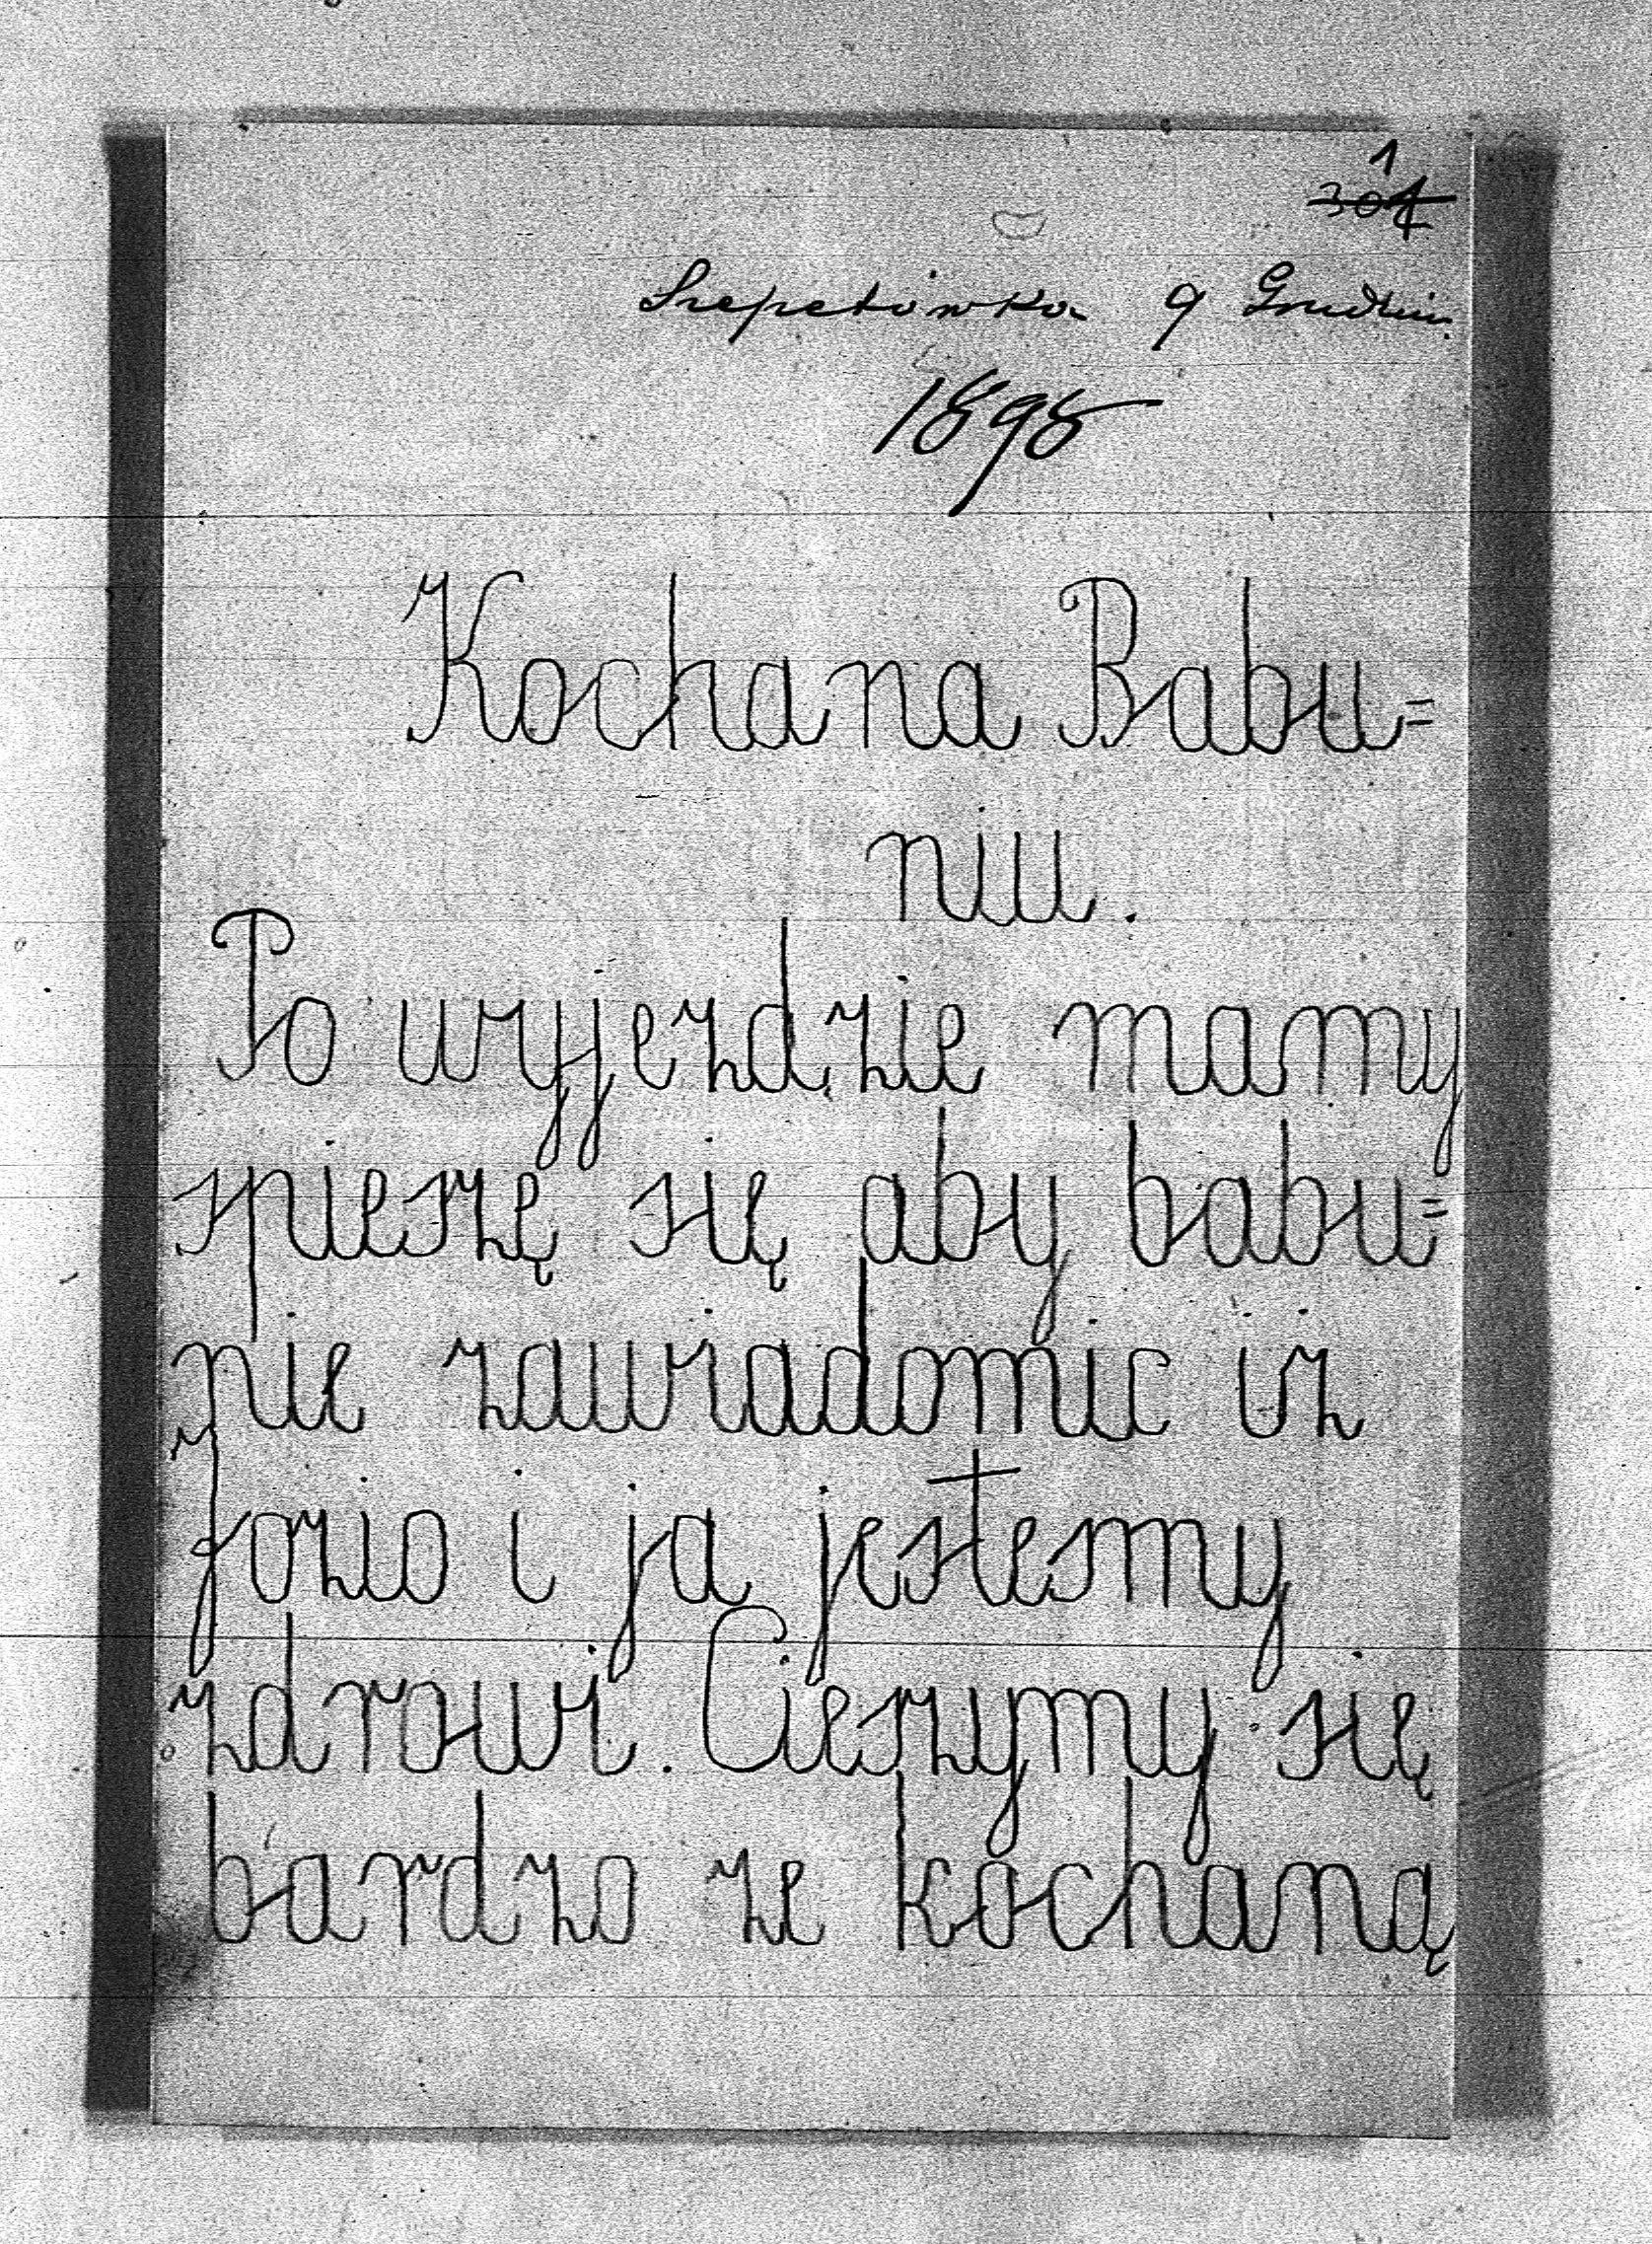 1
304
Szepetówka 9 Grudnia
1898
Kochana Babu=
niu.
Po wyjezdzie mamy
spieszę się aby babu=
nie zawiadomic iz
Jozio i ja jestesmy
zdrowi. Cieszymy się
bardzo ze kochaną